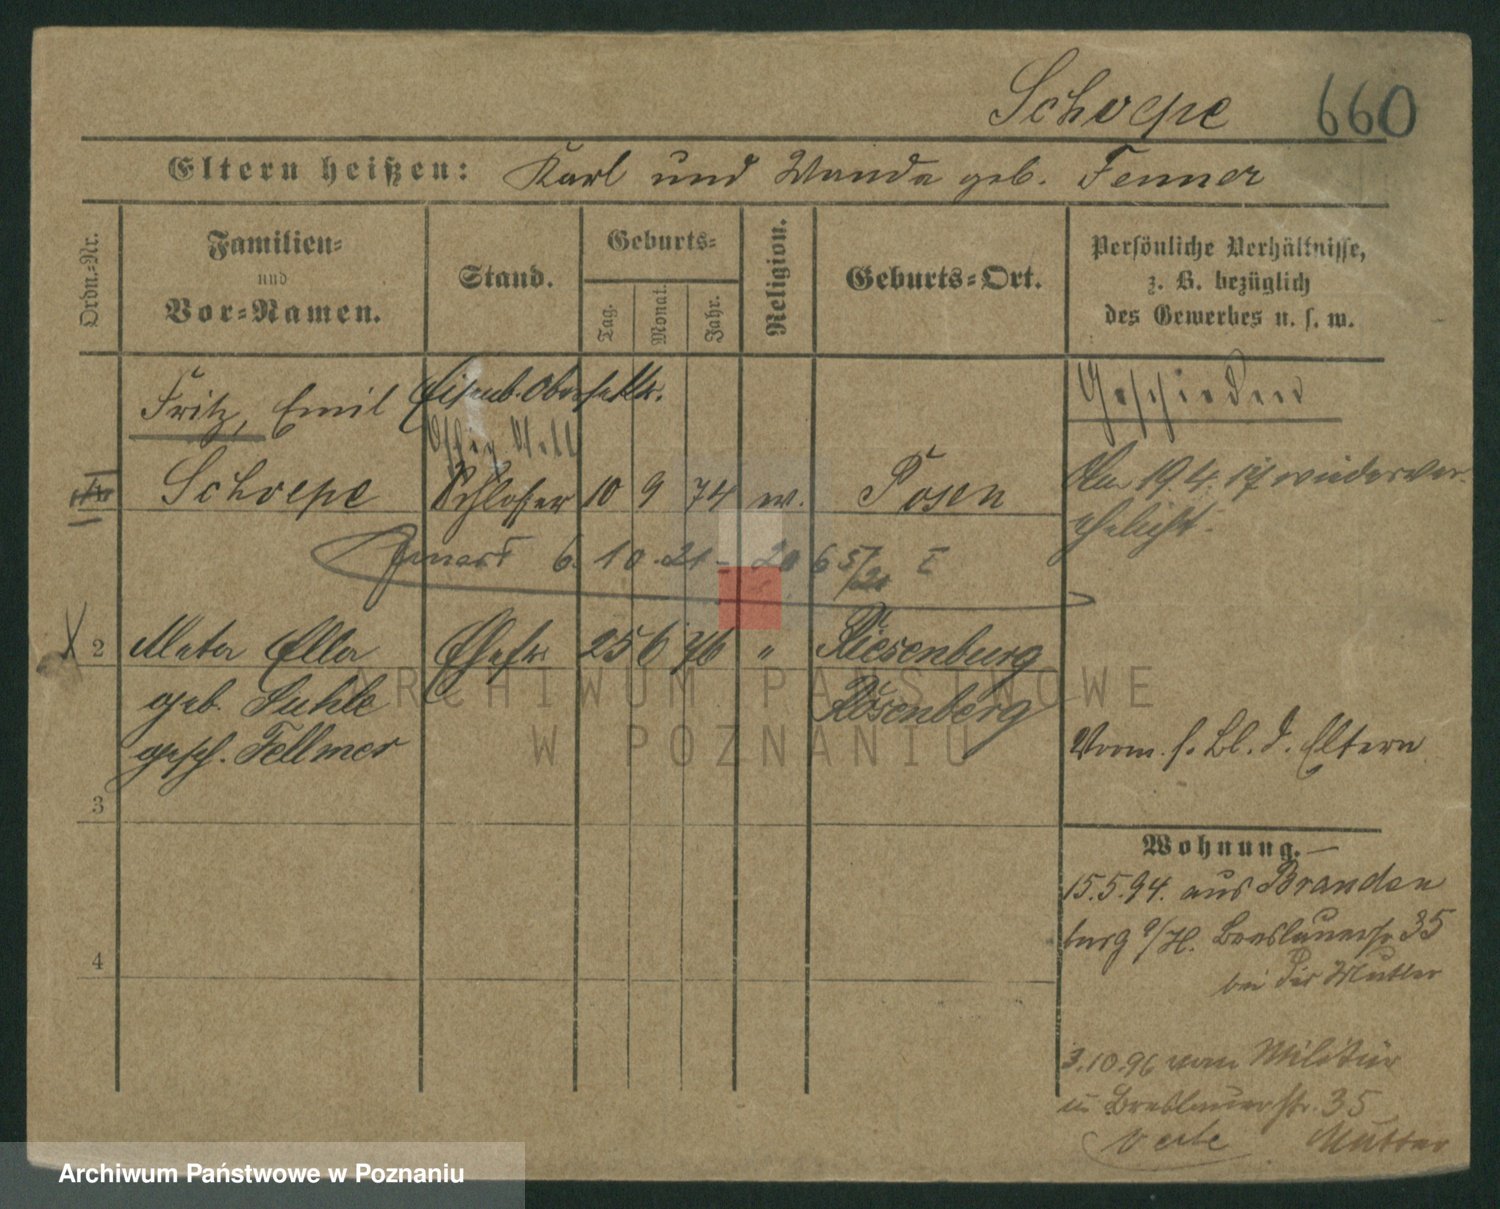 Schoepe 660
Eltern heißen: Karl und Wanda geb. Fenner
Ordn.-Nr.
Familien-
und
Vor-Namen.
Stand.
Geburts-
Tag.
Monat.
Jahr.
Religion.
Geburts-Ort.
Persönliche Verhältnisse,
z. B. bezüglich
des Gewerbes u. s. w.
Fritz, Emil
Geschieden
Schoepe Schlosser 10 9 74 Posen
19.4.17 wiederver-
ehelicht.
6. 10. 21
2 Meta Ella Ehefr. 25 6 76 " Riesenburg
geb. Suhle Rosenberg
gesch. Fellmer
Vorm. s. Bl. d. Eltern
3
Wohnung.
15.5.94. aus Branden
burg a/H. Breslauerstr 35
bei der Mutter
4
3.10.96 vom Militär
Breslauerstr. 35
Mutter
verte
ARCHIWUM PAŃSTWOWE
W POZNANIU
Archiwum Państwowe w Poznaniu